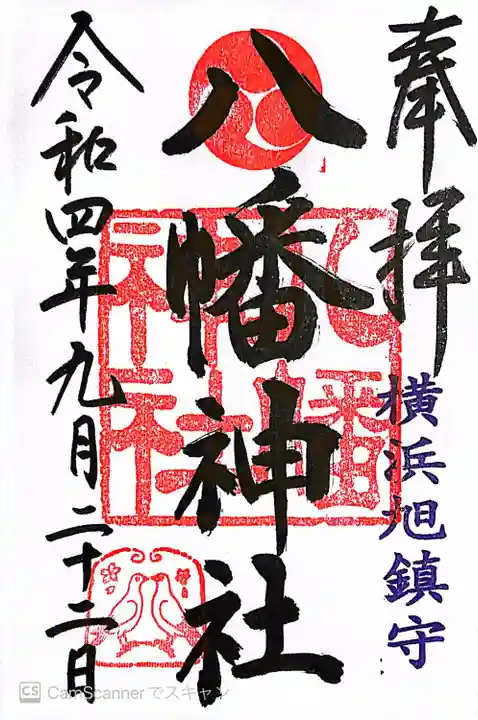 奉拝
横浜旭鎮守
八幡神社
八幡
神社
令和四年九月二十二日
CS CamScannerでスキャン